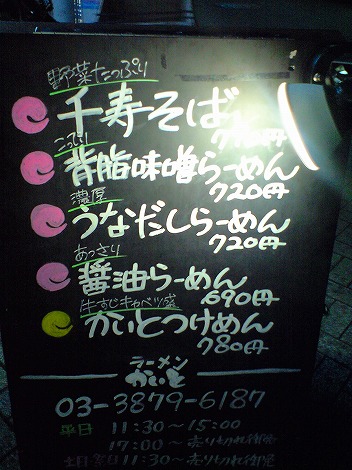 野菜たっぷり
千寿そば
こってり
背脂味噌らーめん
720円
濃厚
うなだしらーめん
720円
あっさり
醤油らーめん
690円
牛すじキャベツ盛
かいとつけめん
780円
ラーメン
かいと
03-3879-6187
平日 11:30〜15:00
17:00〜売り切れ御免
土日祭日11:30〜売り切れ御免